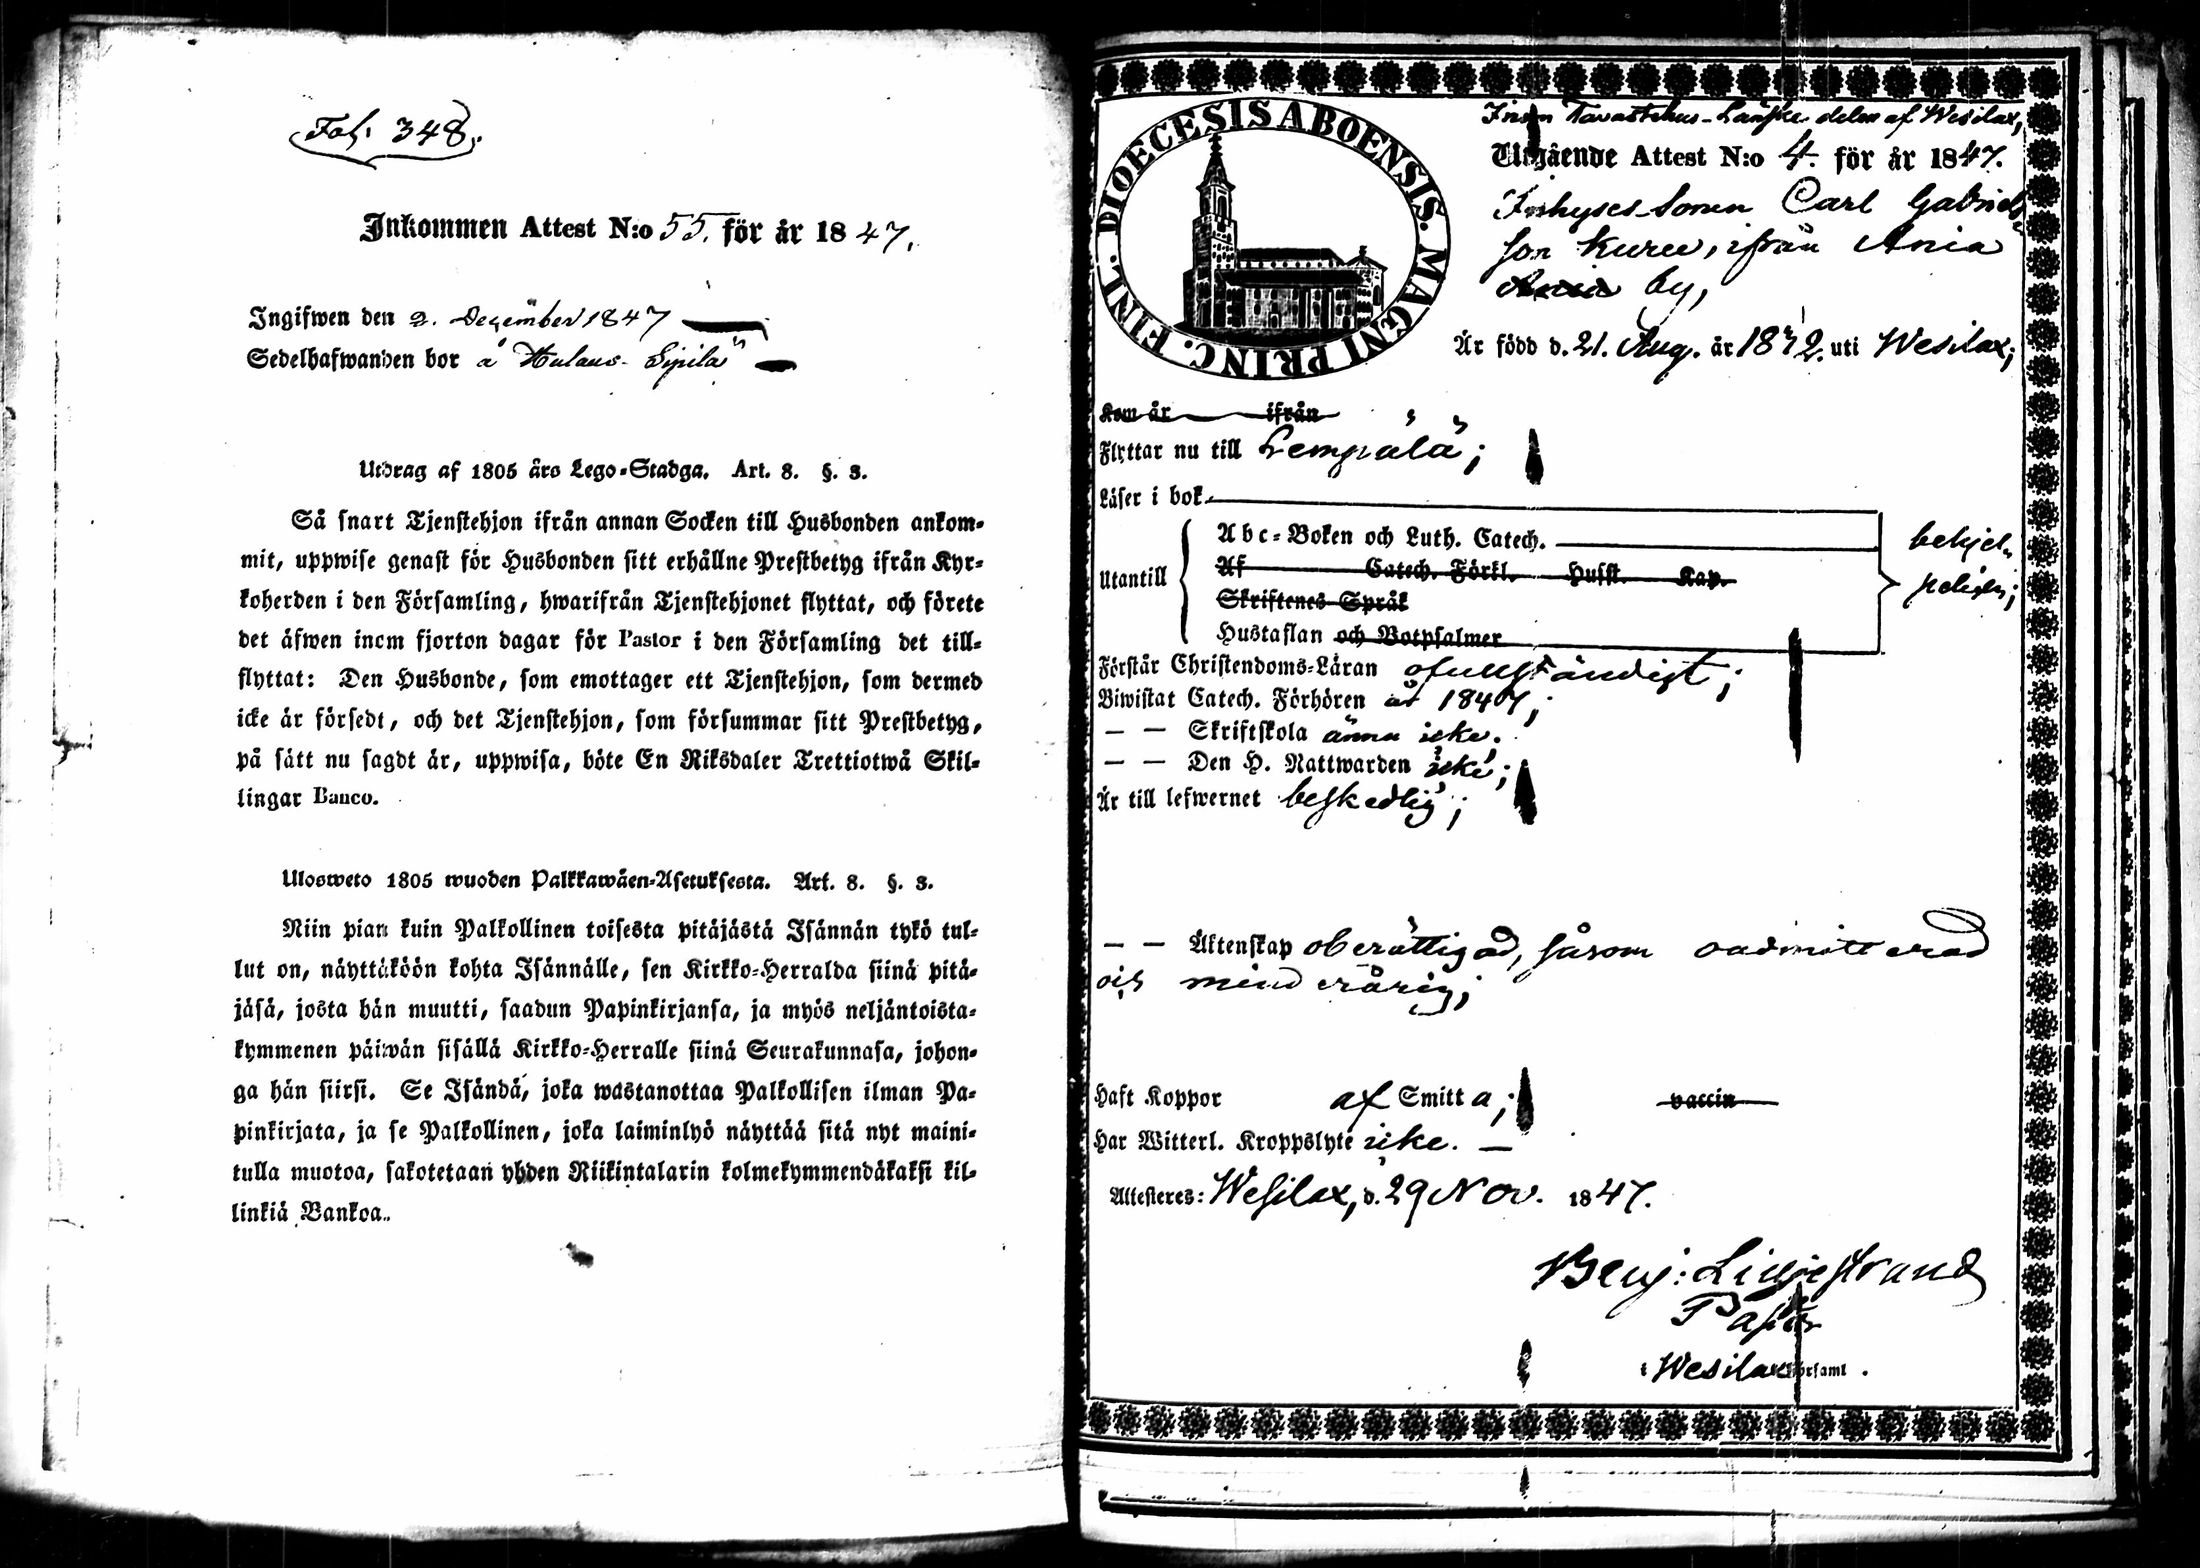 Fol. 348.
Inkommen Attest N:o 55. för år 1847.
Ingifwen den 2. December 1847
Sedelhafwanden bor å Hulaus Sipilä
Utdrag af 1805 års Lego-Stadga. Art. 8. §. 3.
Så snart Tjenstehjon ifrån annan Socken till Husbonden ankom-
mit, uppwise genast för Husbonden sitt erhållne Prestbetyg ifrån Kyr-
koherden i den Församling, hwarifrån Tjenstehjonet flyttat, och förete
det äfwen inom fjorton dagar för Pastor i den Församling det till-
flyttat: Den Husbonde, som emottager ett Tjenstehjon, som dermed
icke är försedt, och det Tjenstehjon, som försummar sitt Prestbetyg,
på sätt nu sagdt är, uppwisa, böte En Riksdaler Trettiotwå Skil-
lingar Banco.
Ulosweto 1805 wuoden Palkkawäen-Asetuksesta. Art. 8. §. 3.
Niin pian kuin Palkollinen toisesta pitäjästä Isännän tykö tul-
lut on, näyttäköön kohta Isännälle, sen Kirkko-Herralda siinä pitä-
jäsä, josta hän muutti, saadun Papinkirjansa, ja myös neljäntoista-
kymmenen päiwän sisällä Kirkko-Herralle siinä Seurakunnasa, johon-
ga hän siirsi. Se Isändä, joka wastanottaa Palkollisen ilman Pa-
pinkirjata, ja se Palkollinen, joka laiminlyö näyttää sitä nyt maini-
tulla muotoa, sakotetaan yhden Riikintalarin kolmekymmendäkaksi kil-
linkiä Bankoa.
DIOECESIS ABOENSIS. MAGNI PRINC. FINL.
Inom Tavastehus Länske delen af Wesilax,
Utgående Attest N:o 4. för år 1847.
Inhyses Sonen Carl Gabriels
son Kuree, ifrån Ania
Ania by,
Är född d. 21. Aug. år 1832. uti Wesilax;
Kom år ifrån
Flyttar nu till Lempälä;
Läser i bok
Abc-Boken och Luth. Catech.
behjel-
peligen;
Utantill
Af Catech. Förkl. Husst. Kap.
Skriftenes Språk
Hustaflan och Botpsalmer
Förstår Christendoms-Läran ofullständigt;
Biwistat Catech. Förhören år 1847;
— — Skriftskola ännu icke.
— — Den H. Nattwarden icke;
Är till lefwernet beskedlig;
— — Äktenskap oberättigad, såsom oadmitterad
och minderårig;
Haft Koppor af Smitta; vaccin
Har Witterl. Kroppslyte icke. —
Attesteres: Wesilax, d. 29 Nov. 1847.
Benj: Liljestrand
Pastor
i Wesilax Församl.